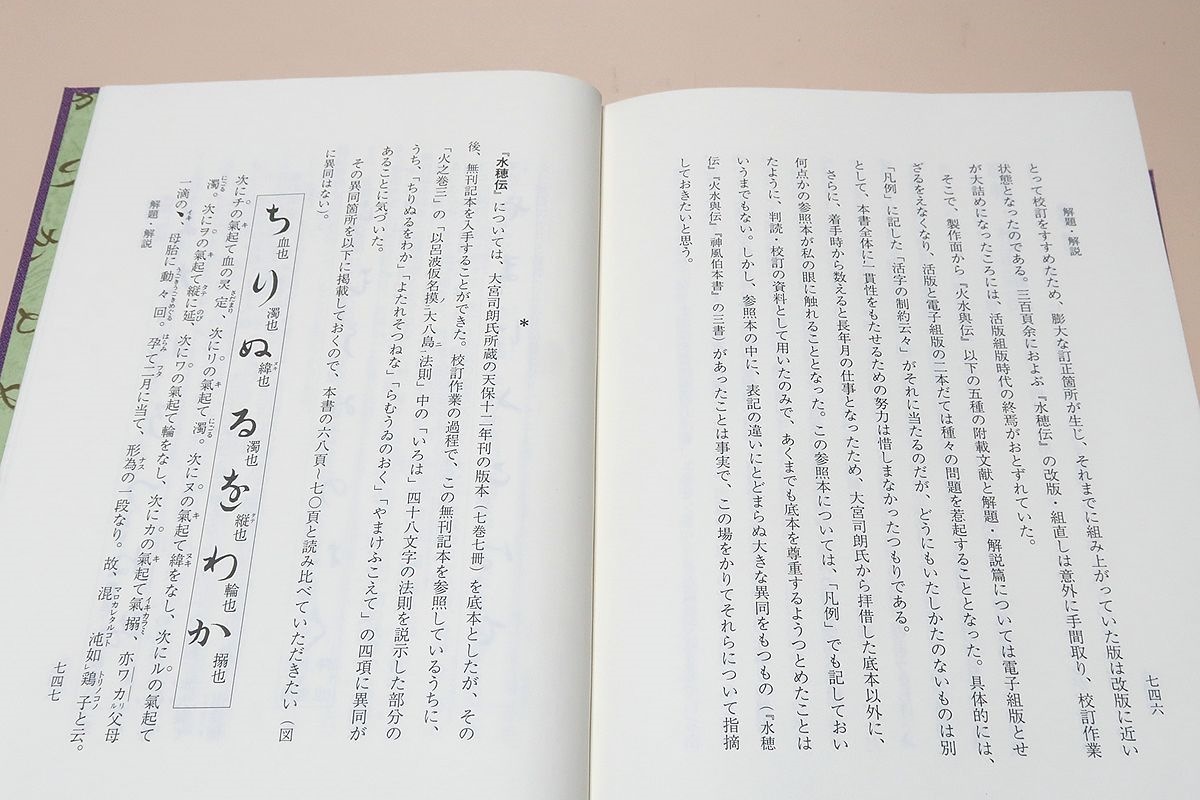 解題・解説
七四六
とって校訂をすすめたため、膨大な訂正箇所が生じ、それまでに組み上がっていた版は改版に近い
状態となったのである。三百頁余におよぶ『水穂伝』の改版・組直しは意外に手間取り、校訂作業
が大詰めになったころには、活版組版時代の終焉がおとずれていた。
そこで、製作面から『火水與伝』以下の五種の附載文献と解題・解説篇については電子組版とせ
ざるをえなくなり、活版と電子組版の二本だては種々の問題を惹起することとなった。具体的には、
「凡例」に記した「活字の制約云々」がそれに当たるのだが、どうにもいたしかたのないものは別
として、本書全体に一貫性をもたせるための努力は惜しまなかったつもりである。
さらに、着手時から数えると長年月の仕事となったため、大宮司朗氏から拝借した底本以外に、
何点かの参照本が私の眼に触れることとなった。この参照本については、「凡例」でも記しておい
たように、判読・校訂の資料として用いたのみで、あくまでも底本を尊重するようつとめたことは
いうまでもない。しかし、参照本の中に、表記の違いにとどまらぬ大きな異同をもつもの(『水穂
伝』『火水與伝』『神風伯本書』の三書)があったことは事実で、この場をかりてそれらについて指摘
しておきたいと思う。
*
『水穂伝』については、大宮司朗氏所蔵の天保十二年刊の版本(七巻七冊)を底本としたが、その
後、無刊記本を入手することができた。校訂作業の過程で、この無刊記本を参照しているうちに、
「火之巻三」の「以呂波仮名摸大八島ニ法則」中の「いろは」四十八文字の法則を説示した部分の
うち、「ちりぬるをわか」「よたれそつねな」「らむうゐのおく」「やまけふこえて」の四項に異同が
あることに気づいた。
その異同箇所を以下に掲載しておくので、本書の六八頁~七〇頁と読み比べていただきたい(図
に異同はない)。
ち血也 り濁也 ぬ緯也 る濁也 を縦也 わ輪也 か搦也
次にチの氣起て血の灵定、次にリの氣起て濁。次にヌの氣起て緯をなし、次にルの氣起て
濁。次にヲの氣起て縦に延、次にワの氣起て輪をなし、次にカの氣起て氣搦、亦ワカル父母
一滴の、母胎に動々回。孕て二月に当て、形為の一段なり。故、混沌如レ鶏子と云。
解題・解説
七四七